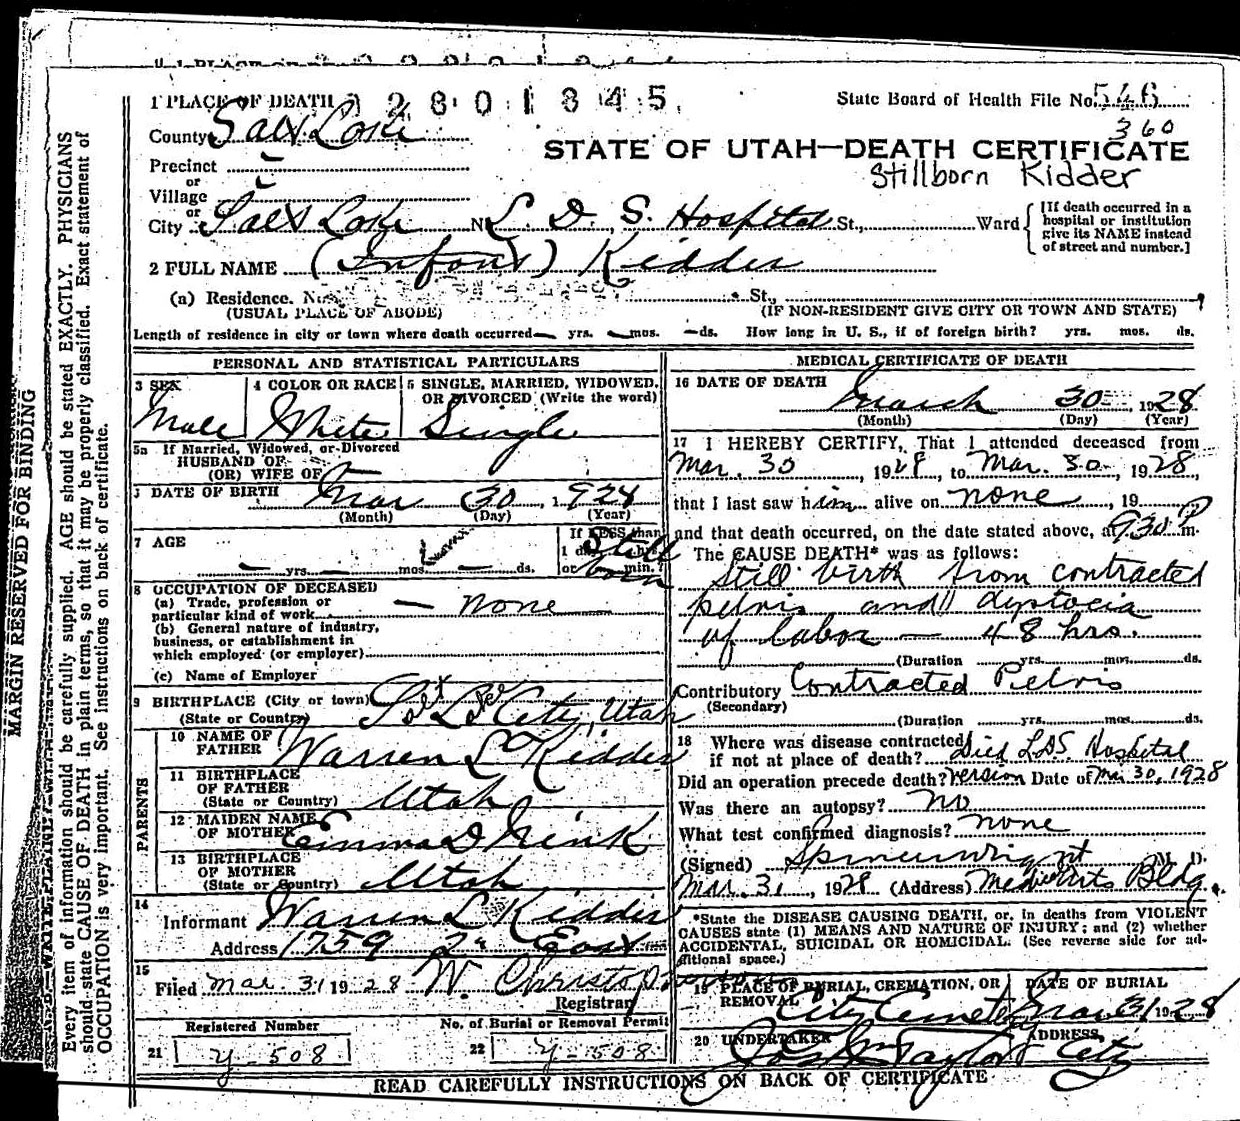 1 PLACE OF DEATH 2801345
State Board of Health File No. 546
360
County Salt Lake
STATE OF UTAH—DEATH CERTIFICATE
Stillborn Kidder
Precinct
or
Village
or
City Salt Lake No. L. D. S. Hospital St., Ward
[If death occurred in a
hospital or institution
give its NAME instead
of street and number.]
2 FULL NAME (Infant) Kidder
(a) Residence. No. St.,
(USUAL PLACE OF ABODE) (IF NON-RESIDENT GIVE CITY OR TOWN AND STATE)
Length of residence in city or town where death occurred— yrs. —mos. —ds. How long in U. S., if of foreign birth? yrs. mos. ds.
PERSONAL AND STATISTICAL PARTICULARS
3 SEX 4 COLOR OR RACE 5 SINGLE, MARRIED, WIDOWED,
OR DIVORCED (Write the word)
Male White Single
5a If Married, Widowed, or Divorced
HUSBAND OF
(OR) WIFE OF —
DATE OF BIRTH Mar 30, 1928
(Month) (Day) (Year)
7 AGE — yrs. — mos. — ds.
If LESS than
1 day hrs.
or min.?
Still born
8 OCCUPATION OF DECEASED
(a) Trade, profession or
particular kind of work — none
(b) General nature of industry,
business, or establishment in
which employed (or employer)
(c) Name of Employer
9 BIRTHPLACE (City or town) Salt Lake City, Utah
(State or Country)
PARENTS
10 NAME OF
FATHER Warren L Kidder
11 BIRTHPLACE
OF FATHER
(State or Country) Utah
12 MAIDEN NAME
OF MOTHER Emma D Wink
13 BIRTHPLACE
OF MOTHER
(State or Country) Utah
14
Informant Warren L Kidder
Address 1759 2nd East
15
Filed Mar 31 1928 W. Christopherson
Registrar
Registered Number No. of Burial or Removal Permit
21 Y-508 22 Y-508
MEDICAL CERTIFICATE OF DEATH
16 DATE OF DEATH
March 30 1928
(Month) (Day) (Year)
17 I HEREBY CERTIFY, That I attended deceased from
Mar. 30, 1928, to Mar. 30, 1928,
that I last saw him alive on none, 19
and that death occurred, on the date stated above, at 930 P m.
The CAUSE DEATH* was as follows:
Still birth from contracted
pelvis and dystocia
of labor — 48 hrs.
(Duration yrs. mos. ds.
Contributory Contracted Pelvis
(Secondary)
(Duration yrs. mos. ds.
18 Where was disease contracted
if not at place of death? Died LDS Hospital
Did an operation precede death? version Date of Mar 30, 1928
Was there an autopsy? no
What test confirmed diagnosis? none
(Signed) M. D.
Mar. 31, 1928 (Address) Med Arts Bldg.
*State the DISEASE CAUSING DEATH, or, in deaths from VIOLENT
CAUSES state (1) MEANS AND NATURE OF INJURY; and (2) whether
ACCIDENTAL, SUICIDAL OR HOMICIDAL. (See reverse side for ad-
ditional space.)
19 PLACE OF BURIAL, CREMATION, OR
REMOVAL City Cemetery
DATE OF BURIAL
Mar 31 1928
20 UNDERTAKER ADDRESS
Jos Wm Taylor City
READ CAREFULLY INSTRUCTIONS ON BACK OF CERTIFICATE
MARGIN RESERVED FOR BINDING
WRITE PLAINLY, WITH
Every item of information should be carefully supplied. AGE should be stated EXACTLY. PHYSICIANS
should state CAUSE OF DEATH in plain terms, so that it may be properly classified. Exact statement of
OCCUPATION is very important. See instructions on back of certificate.